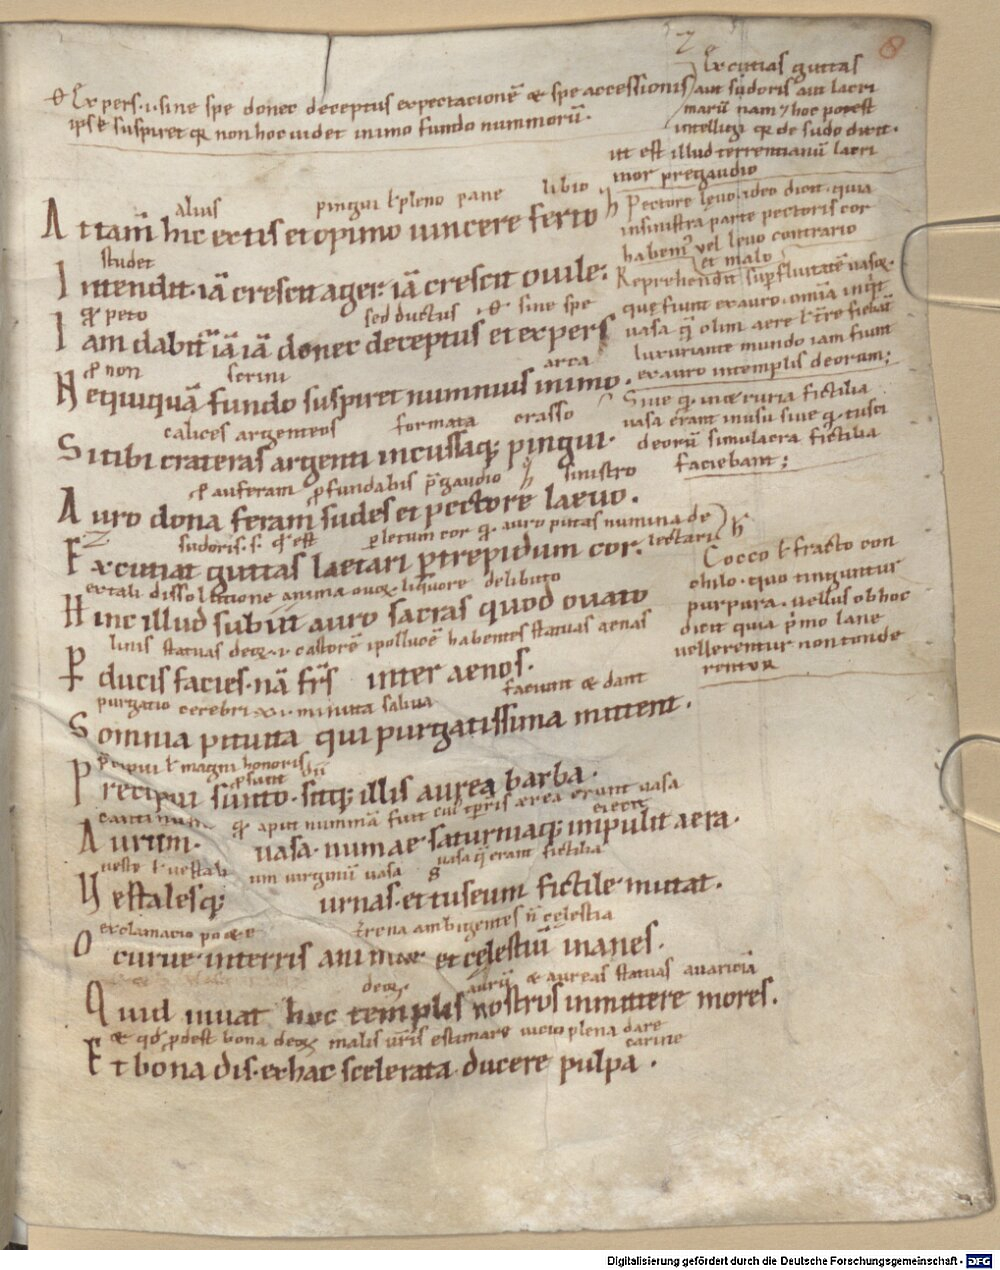 Expers .i. sine spe donec deceptus expectacionē & spe accessionis
ipse suspiret qr non hoc uidet in imo fundo nummorū.
Z
8
Excutias guttas
aut sudoris aut lacri
marū nam 7 hoc potest
intellegi qr de sudo dicit.
ut est illud terrentianū lacri
mor pregaudio
h Pectore leuo ideo dicit quia
insinistra parte pectoris cor
habem̄ uel leuo contrario
et malo
Reprehendit suꝑfluitatē uasoꝝ
quę fiunt exauro. omīa inqͥt
uasa qͥ olim aere ł t̄re fiebāt
luxuriante mundo iam fiunt
exauro intemplis deorum;
Siue qͥ incetruria fictilia
uasa erant inusu siue qͥ tusci
deorū simulacra fictilia
faciebant;
Cocco ł fracto con
chilo. quo tinguntur
purpura. uellus obhoc
dicit quia p̄mo lane
uellerentur non tonde
rentur
alius pingui ł pleno pane libio
Attam̄ hic extis et opimo uincere ferto
studet
Intendit. iā crescit ager. iā crescit ouile;
qͥ peto sed ductus & sine spe
Iam dabit̄ iā iā donec deceptus et expers
ꝑ non serini arca
Nequiquā fundo suspiret nummus inimo.
calices argenteos formata crasso
Sitibi crateras argenti incussaq; pingui.
ꝑ auferam ꝓfundabis p̄gaudio h sinistro
Auro dona feram sudes et pectore laeuo.
Z sudoris. s. qͥ est ꝑletum cor qͥ. auro putas numina de lectari h
Excutiat guttas laetari ptrepidum cor.
extali dissolutione anima ouoꝝ liquore delibuto
Hinc illud subiit auro sacras quod ouato
linis statuas deoꝝ .i. castorē ⁊pollucē habentes statuas aenas
Pducis facies. nā fr̄s inter aenos.
purgatio cerebri minuta saliua faciunt & dant
Somnia pituita qui purgatissima mittent.
p̄cipui ł magni honoris
Precipui sunto. sitq; illis aurea barba.
qͥ aput nummā fuit cul tꝑris aerea erant uasa
Aurum. uasa. numae. saturniaq; impulit aera.
ueste ł uestali um uirginū uasa uasa qͥ erant fictilia eiecit
Vestalesq; urnas. et tuscum fictile mutat.
exclamacio poete t̄rena ambigentes ñ celestia
O curue. interris animae et cęlestiū inanes.
deoꝝ aurū & aureas statuas auariciā
Quid iuuat hoc templis nostros inmittere mores.
& qd̄ ꝓdest bona deoꝝ malis ur̄is estimare uicio plena dare
carne
Et bona dis. exhac scelerata ducere pulpa.
Digitalisierung gefördert durch die Deutsche Forschungsgemeinschaft - DFG